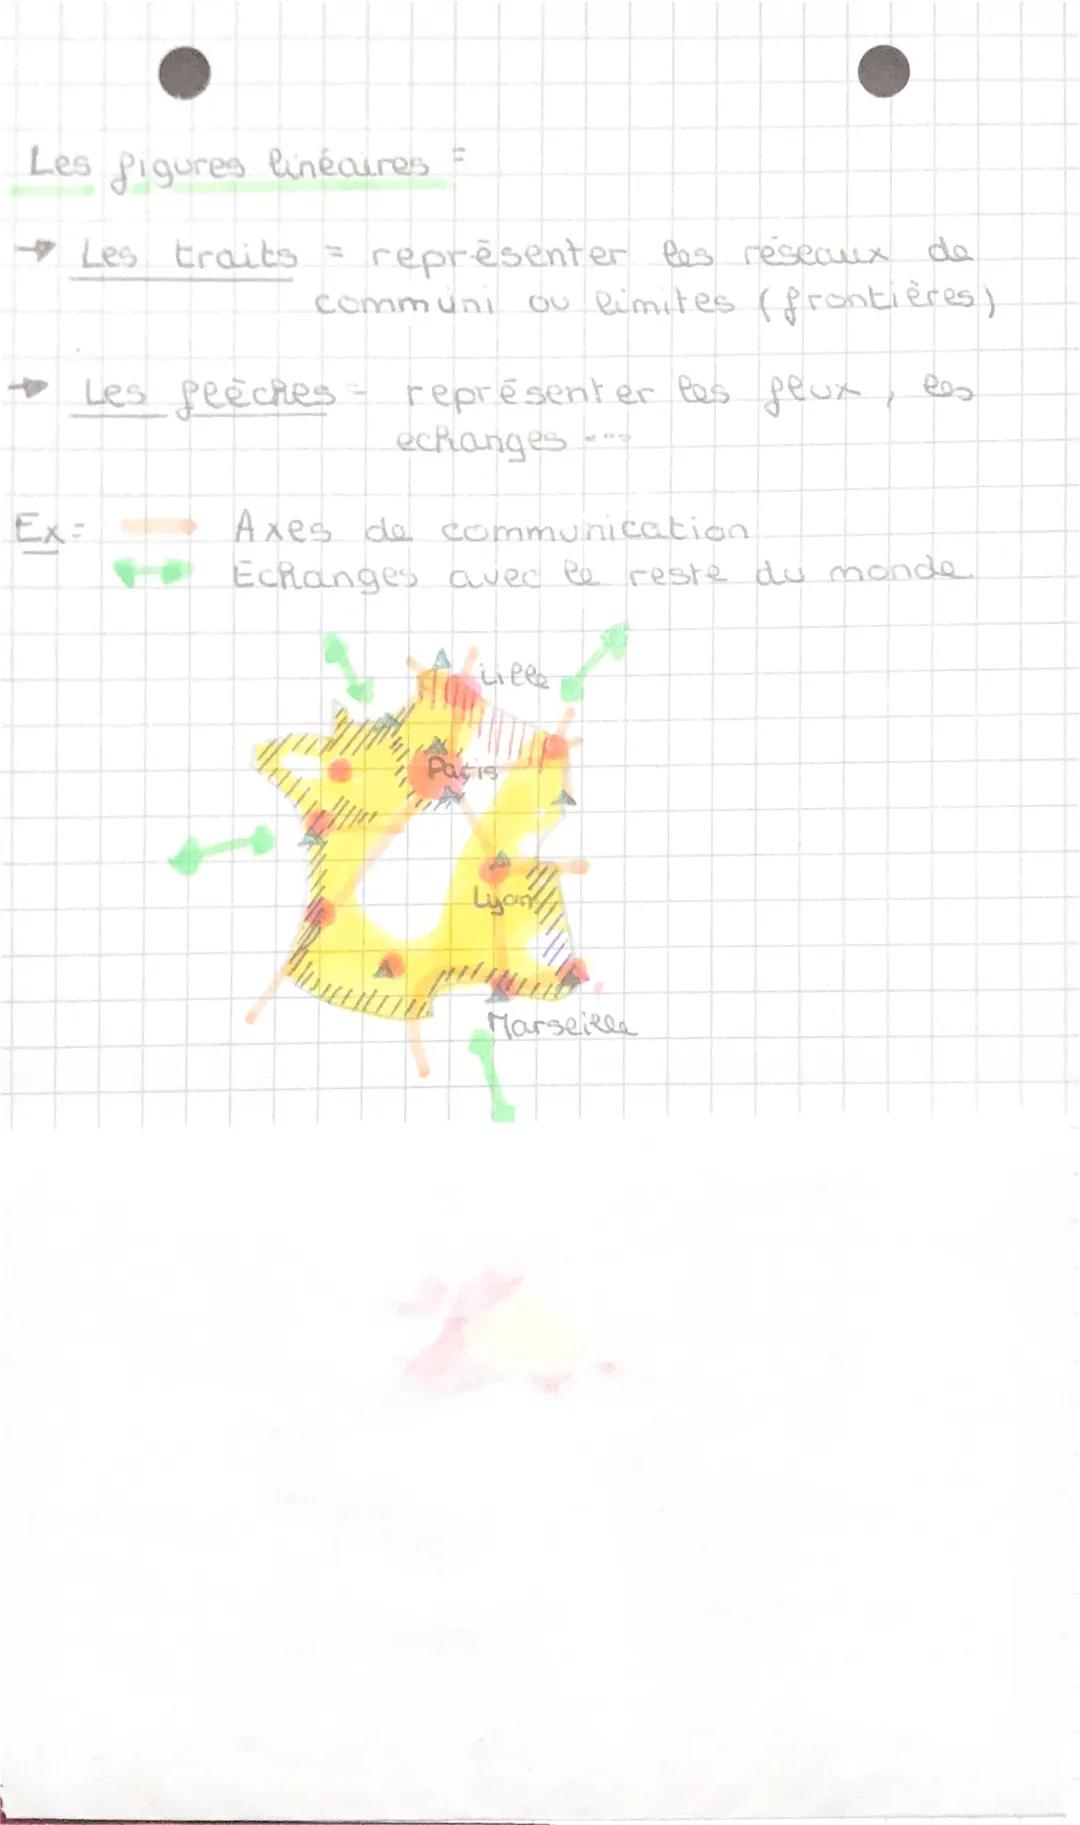 Les figures linéaires =
→ Les traits = représenter les réseaux de
communi ou limites (frontières)
→ Les flèches = représenter les flux, les
echanges ....
Ex = Axes de communication
Echanges avec le reste du monde
Lille
Paris
Lyon
Marseille